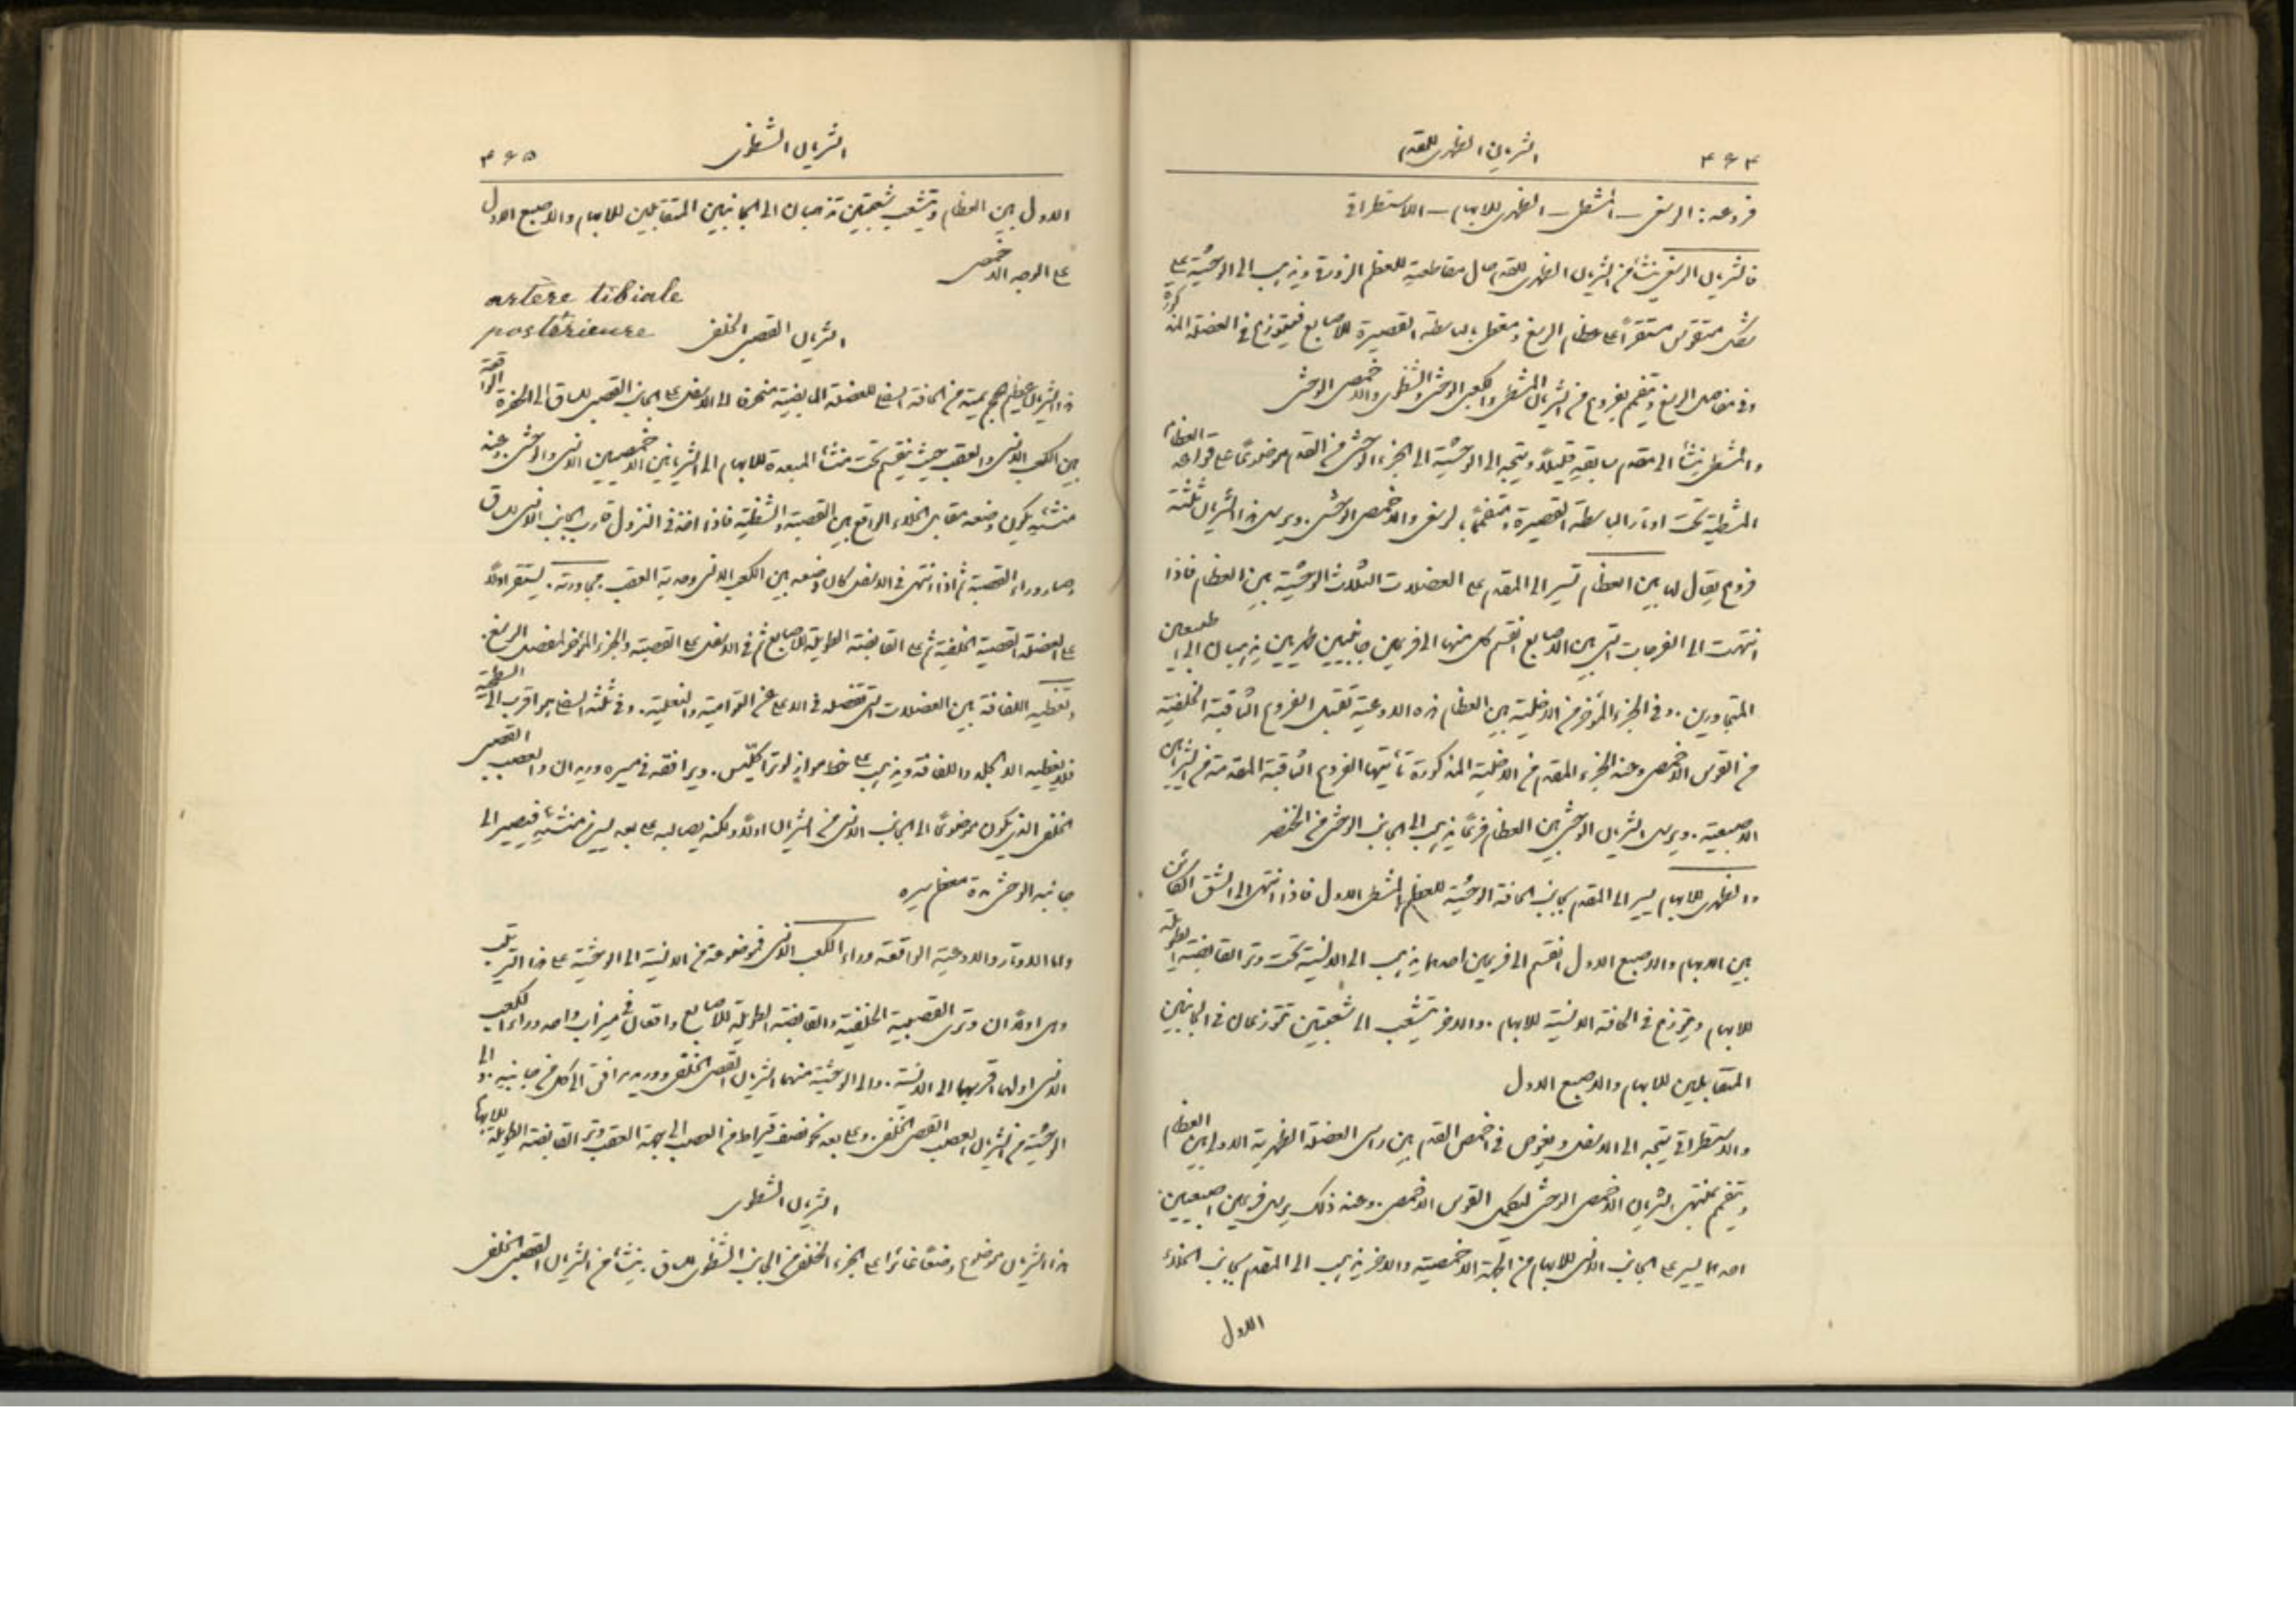 ٤٦٤ الشريان الظهرى للقدم
فروعه : الرسغى — المشطى — الظهرى للابهام — الاستطراقى
فالشريان الرسغى ينشأ من الشريان الظهرى للقدم حال مقاطعته للعظم الزورقى ويذهب الى الوحشية على
شكل متقوس مستقرا على عظام الرسغ ومغطى بالباسطة القصيرة للاصابع فيتوزع فى العضلة المذكورة
وفى مفاصل الرسغ ويتفمم بفروع من الشريان المشطى والكعبى الوحشى والشظوى والاخمصى الوحشى
والمشطى ينشأ الى مقدم سابقه قليلاً ويتجه الى الوحشية الى الجزء الوحشى من القدم موضوعًا على قواعد العظام
المشطية تحت اوتار الباسطة القصيرة ومتفممًا بالرسغى والاخمصى الوحشى . ويرسل هذا الشريان ثلثة
فروع يقال لها بين العظام تسير الى المقدم على العضلات الثلاث الوحشية بين العظام فاذا
انتهت الى الفرجات التى بين الاصابع انقسم كل منها الى فرعين جانبيين ظهريين يذهبان الى
المتجاورين . وفى الجزء المؤخر من الاخلية بين العظام هذه الاوعية تقبل الفروع الثاقبة الخلفية
من القوس الاخمصى وعند الجزء المقدم من الاخلية المذكورة تأتيها الفروع الثاقبة المقدمة من الشرايين
الاصبعية . ويرسل الشريان الوحشى بين العظام فرعًا يذهب الى الجانب الوحشى من الخنصر
والظهرى للابهام يسير الى المقدم بجانب الحافة الوحشية للعظم المشطى الاول فاذا انتهى الى الشق الكائن
بين الابهام والاصبع الاول انقسم الى فرعين احدهما يذهب الى الانسية تحت وتر القابضة الطويلة
للابهام ويتوزع فى الحافة الانسية للابهام . والاخر يتشعب الى شعبتين تتوزعان فى الجانبين
المتقابلين للابهام والاصبع الاول
والاستطراقى يتجه الى الاسفل ويغوص فى اخمص القدم بين راسى العضلة الظهرية الاولى بين العظام
ويتفمم بمنتهى الشريان الاخمصى الوحشى لتكميل القوس الاخمصى . وعند ذلك يرسل فرعين اصبعيين
احدهما يسير على الجانب الانسى للابهام من الجهة الاخمصية والاخر يذهب الى المقدم بجانب الخلاء
الاول
الشريان الشظوى ٤٦٥
الاول بين العظام ويتشعب شعبتين تذهبان الى الجانبين المتقابلين للابهام والاصبع الاول
على الوجه الاخمصى
artère tibiale
postérieure
الشريان القصبى الخلفى
هذا الشريان عظيم الحجم يمتد من الحافة السفلى للعضلة المابضية منحرفا الى الاسفل على الجانب القصبى للساق الى الحفرة الواقعة
بين الكعب الانسى والعقب حيث ينقسم تحت منشأ المبعدة للابهام الى الشريانين الاخمصيين الانسى والوحشى . وعند
منشئه يكون وضعه مقابل الخلاء الواقع بين القصبة والشظية فاذا اخذ فى النزول قارب الجانب الانسى للساق
وصار وراء القصبة ثم اذا انتهى فى الاسفل كان وضعه بين الكعب الانسى وحدبة العقب . مجاورته . يستقر اولاً
على العضلة القصبية الخلفية ثم على القابضة الطويلة للاصابع ثم فى الاسفل على القصبة والجزء المؤخر لمفصل الرسغ .
وتغطيه اللفافة بين العضلات التى تفصله فى الاعلى عن التوامية والنعلية . وفى ثلثه السفلى هو اقرب الى السطحية
فلا يغطيه الا الجلد واللفافة ويذهب على خط مواز لوتر اكليس . ويرافقه فى مسيره وريدان والعصب القصبى
الخلفى الذى يكون موضوعًا الى الجانب الانسى من الشريان اولاً ولكنه يصالبه على بعد يسير من منشئه فيصير الى
جانبه الوحشى مدة معظم سيره
واما الاوتار والاوعية الواقعة وراء الكعب الانسى فموضوعة من الانسية الى الوحشية على هذا الترتيب
وهى اولاً ان وترى القصبية الخلفية والقابضة الطويلة للاصابع واقعان فى ميزاب واحد وراء الكعب
الانسى اولهما اقربهما الى الانسية . والى الوحشية منهما الشريان القصبى الخلفى ووريد مرافق الى كل من جانبيه . والى
الوحشية من الشريان العصب القصبى الخلفى . وعلى بعد نحو نصف قيراط من العصب الى جهة العقب وتر القابضة الطويلة للابهام
الشريان الشظوى
هذا الشريان موضوع وضعًا غائرا على الجزء الخلفى من الجانب الشظوى للساق . ينشأ من الشريان القصبى الخلفى